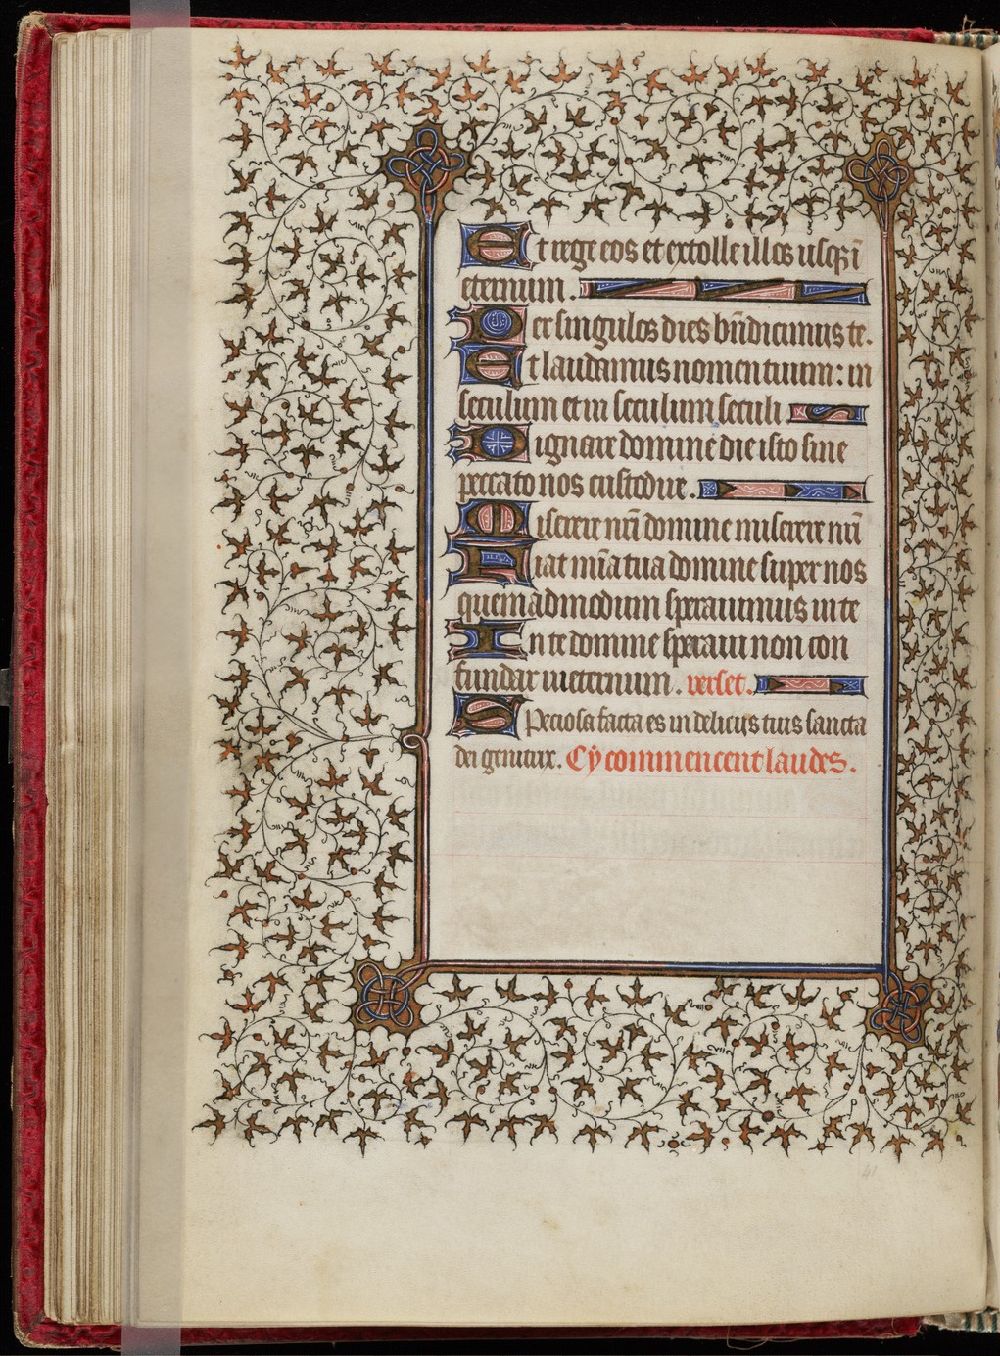 Et rege eos et extolle illos usq̄ ī
eternum.
Per singulos dies bn̄dicimus te.
Et laudamus nomen tuum: in
seculum et in seculum seculi
Dignare domine die isto sine
peccato nos custodire.
Miserere nr̄i domine miserere nr̄i
Fiat mīa tua domine super nos
quemadmodum sperauimus in te
In te domine speraui non con
fundar in eternum. verset.
Speciosa facta es in deliciis tuis sancta
dei genitrix. Cy commencent laudes.
41